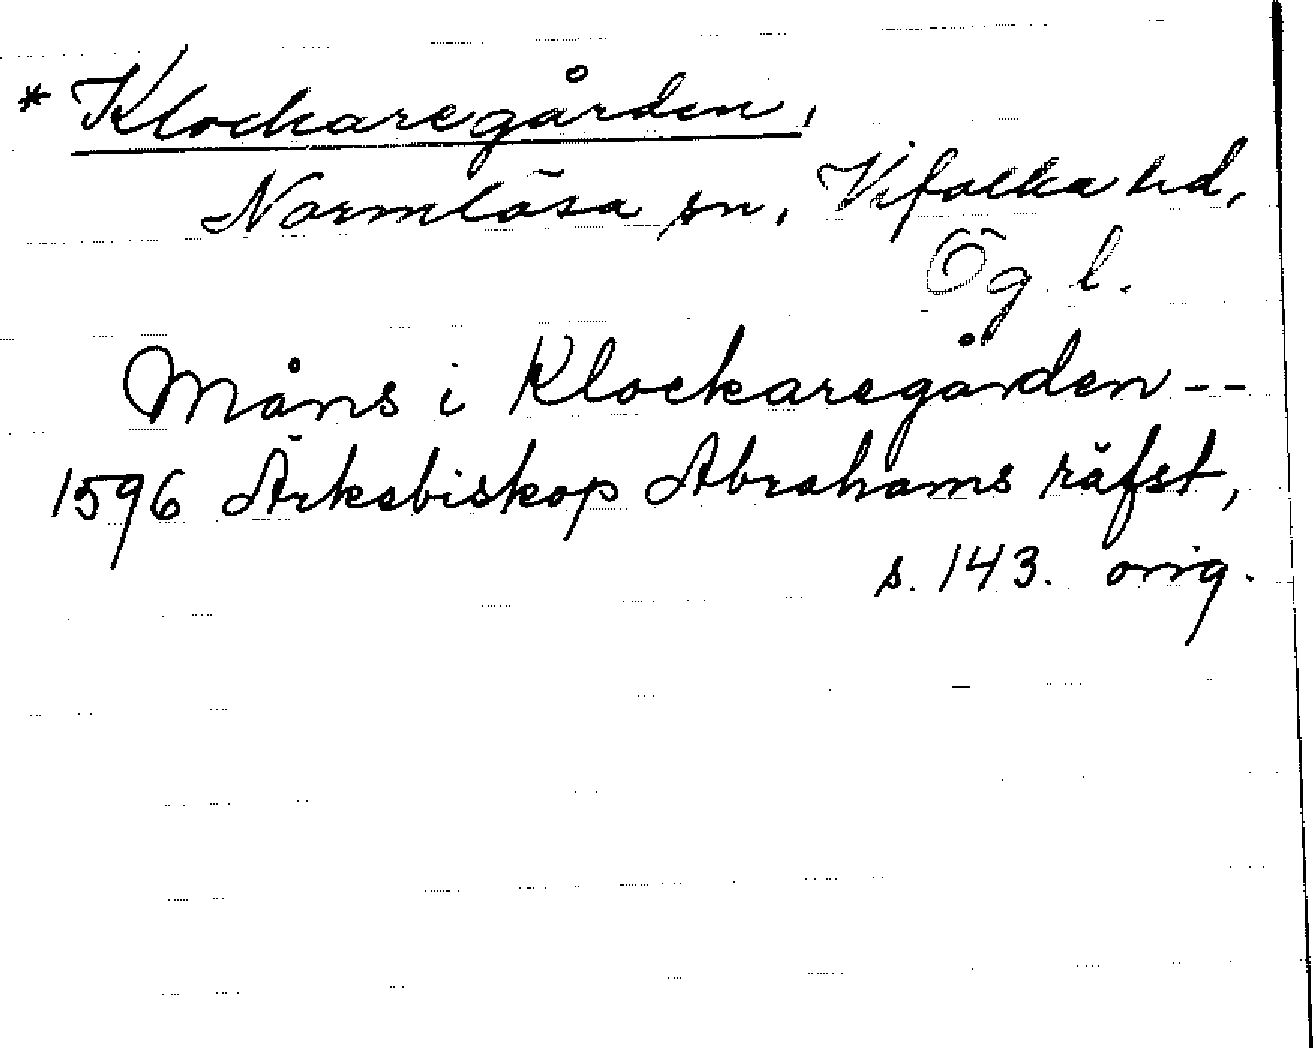 * Klockaregården,
Normlösa sn, Vifolka hd,
Ög l.
Måns i Klockaregården --
1596 Ärkebiskop Abrahams räfst,
s. 143. orig.